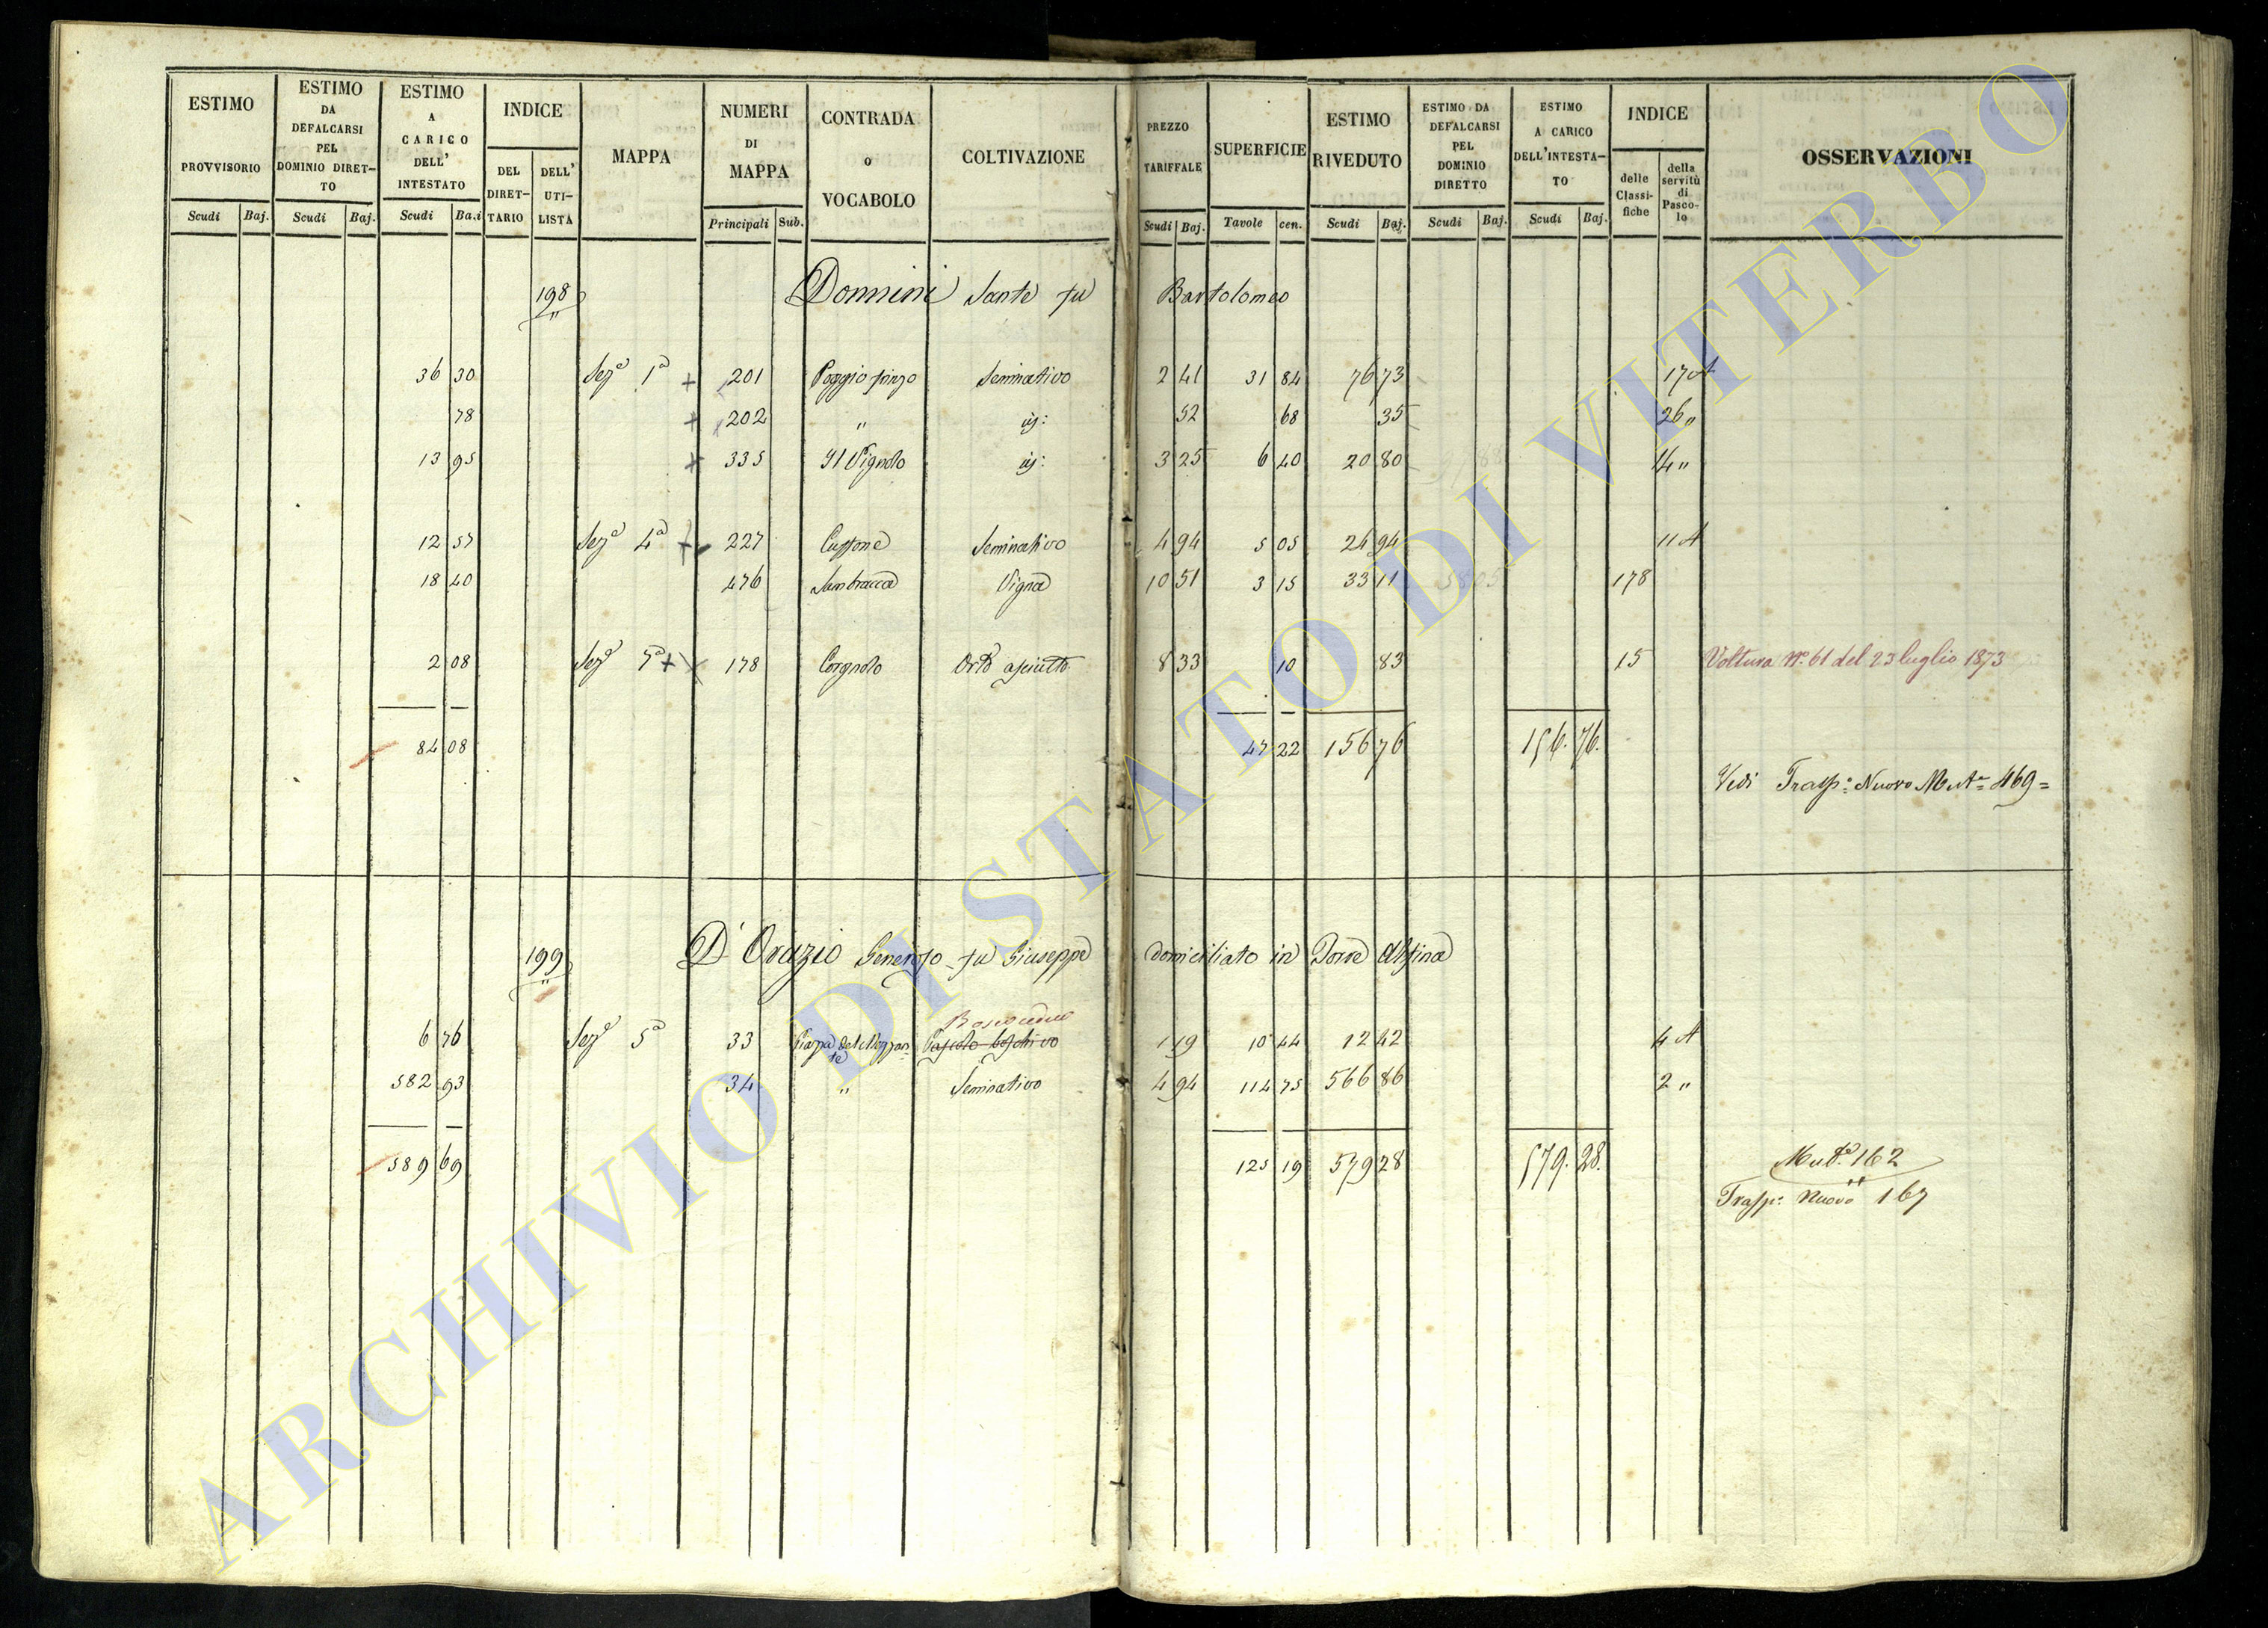 ESTIMO PROVVISORIO Scudi Baj.
ESTIMO DA DEFALCARSI PEL DOMINIO DIRETTO Scudi Baj.
ESTIMO A CARICO DELL' INTESTATO Scudi Ba.i
INDICE DEL DIRETTARIO DELL' UTILISTA
MAPPA
NUMERI DI MAPPA Principali Sub.
CONTRADA O VOCABOLO
COLTIVAZIONE
PREZZO TARIFFALE Scudi Baj.
SUPERFICIE Tavole cen.
ESTIMO RIVEDUTO Scudi Baj.
ESTIMO DA DEFALCARSI PEL DOMINIO DIRETTO Scudi Baj.
ESTIMO A CARICO DELL'INTESTATO Scudi Baj.
INDICE delle Classifiche della servitù di Pascolo
OSSERVAZIONI
198 Donnini Sante fu Bartolomeo
36 30 Seze 1a + 201 Poggio Seminativo 2 41 31 84 76 73 17 A
78 + 202 " id: 52 68 35 26 "
13 95 + 335 Il Vignolo id: 3 25 6 40 20 80 14 "
12 57 Seze 4a + 227 Seminativo 4 94 5 05 24 94 11 A
18 40 476 Vigna 10 51 3 15 33 11 178
2 08 Seze 5a + 178 Corgnolo Orto asciutto 8 33 10 83 15 Voltura No. 61 del 23 luglio 1873
84 08 47 22 156 76 156. 76.
Vedi Trasp: Nuovo Mut= 469=
199 D'Orazio Generoso fu Giuseppe domiciliato in Torre Alfina
Bosco ceduo
6 76 Seze 5a 33 Pascolo boschivo 1 19 10 44 12 42 4 A
582 93 34 " Seminativo 4 94 114 75 566 86 2 "
589 69 125 19 579 28 579. 28. Muta. 162
Trasp: Nuovo 167
ARCHIVIO DI STATO DI VITERBO